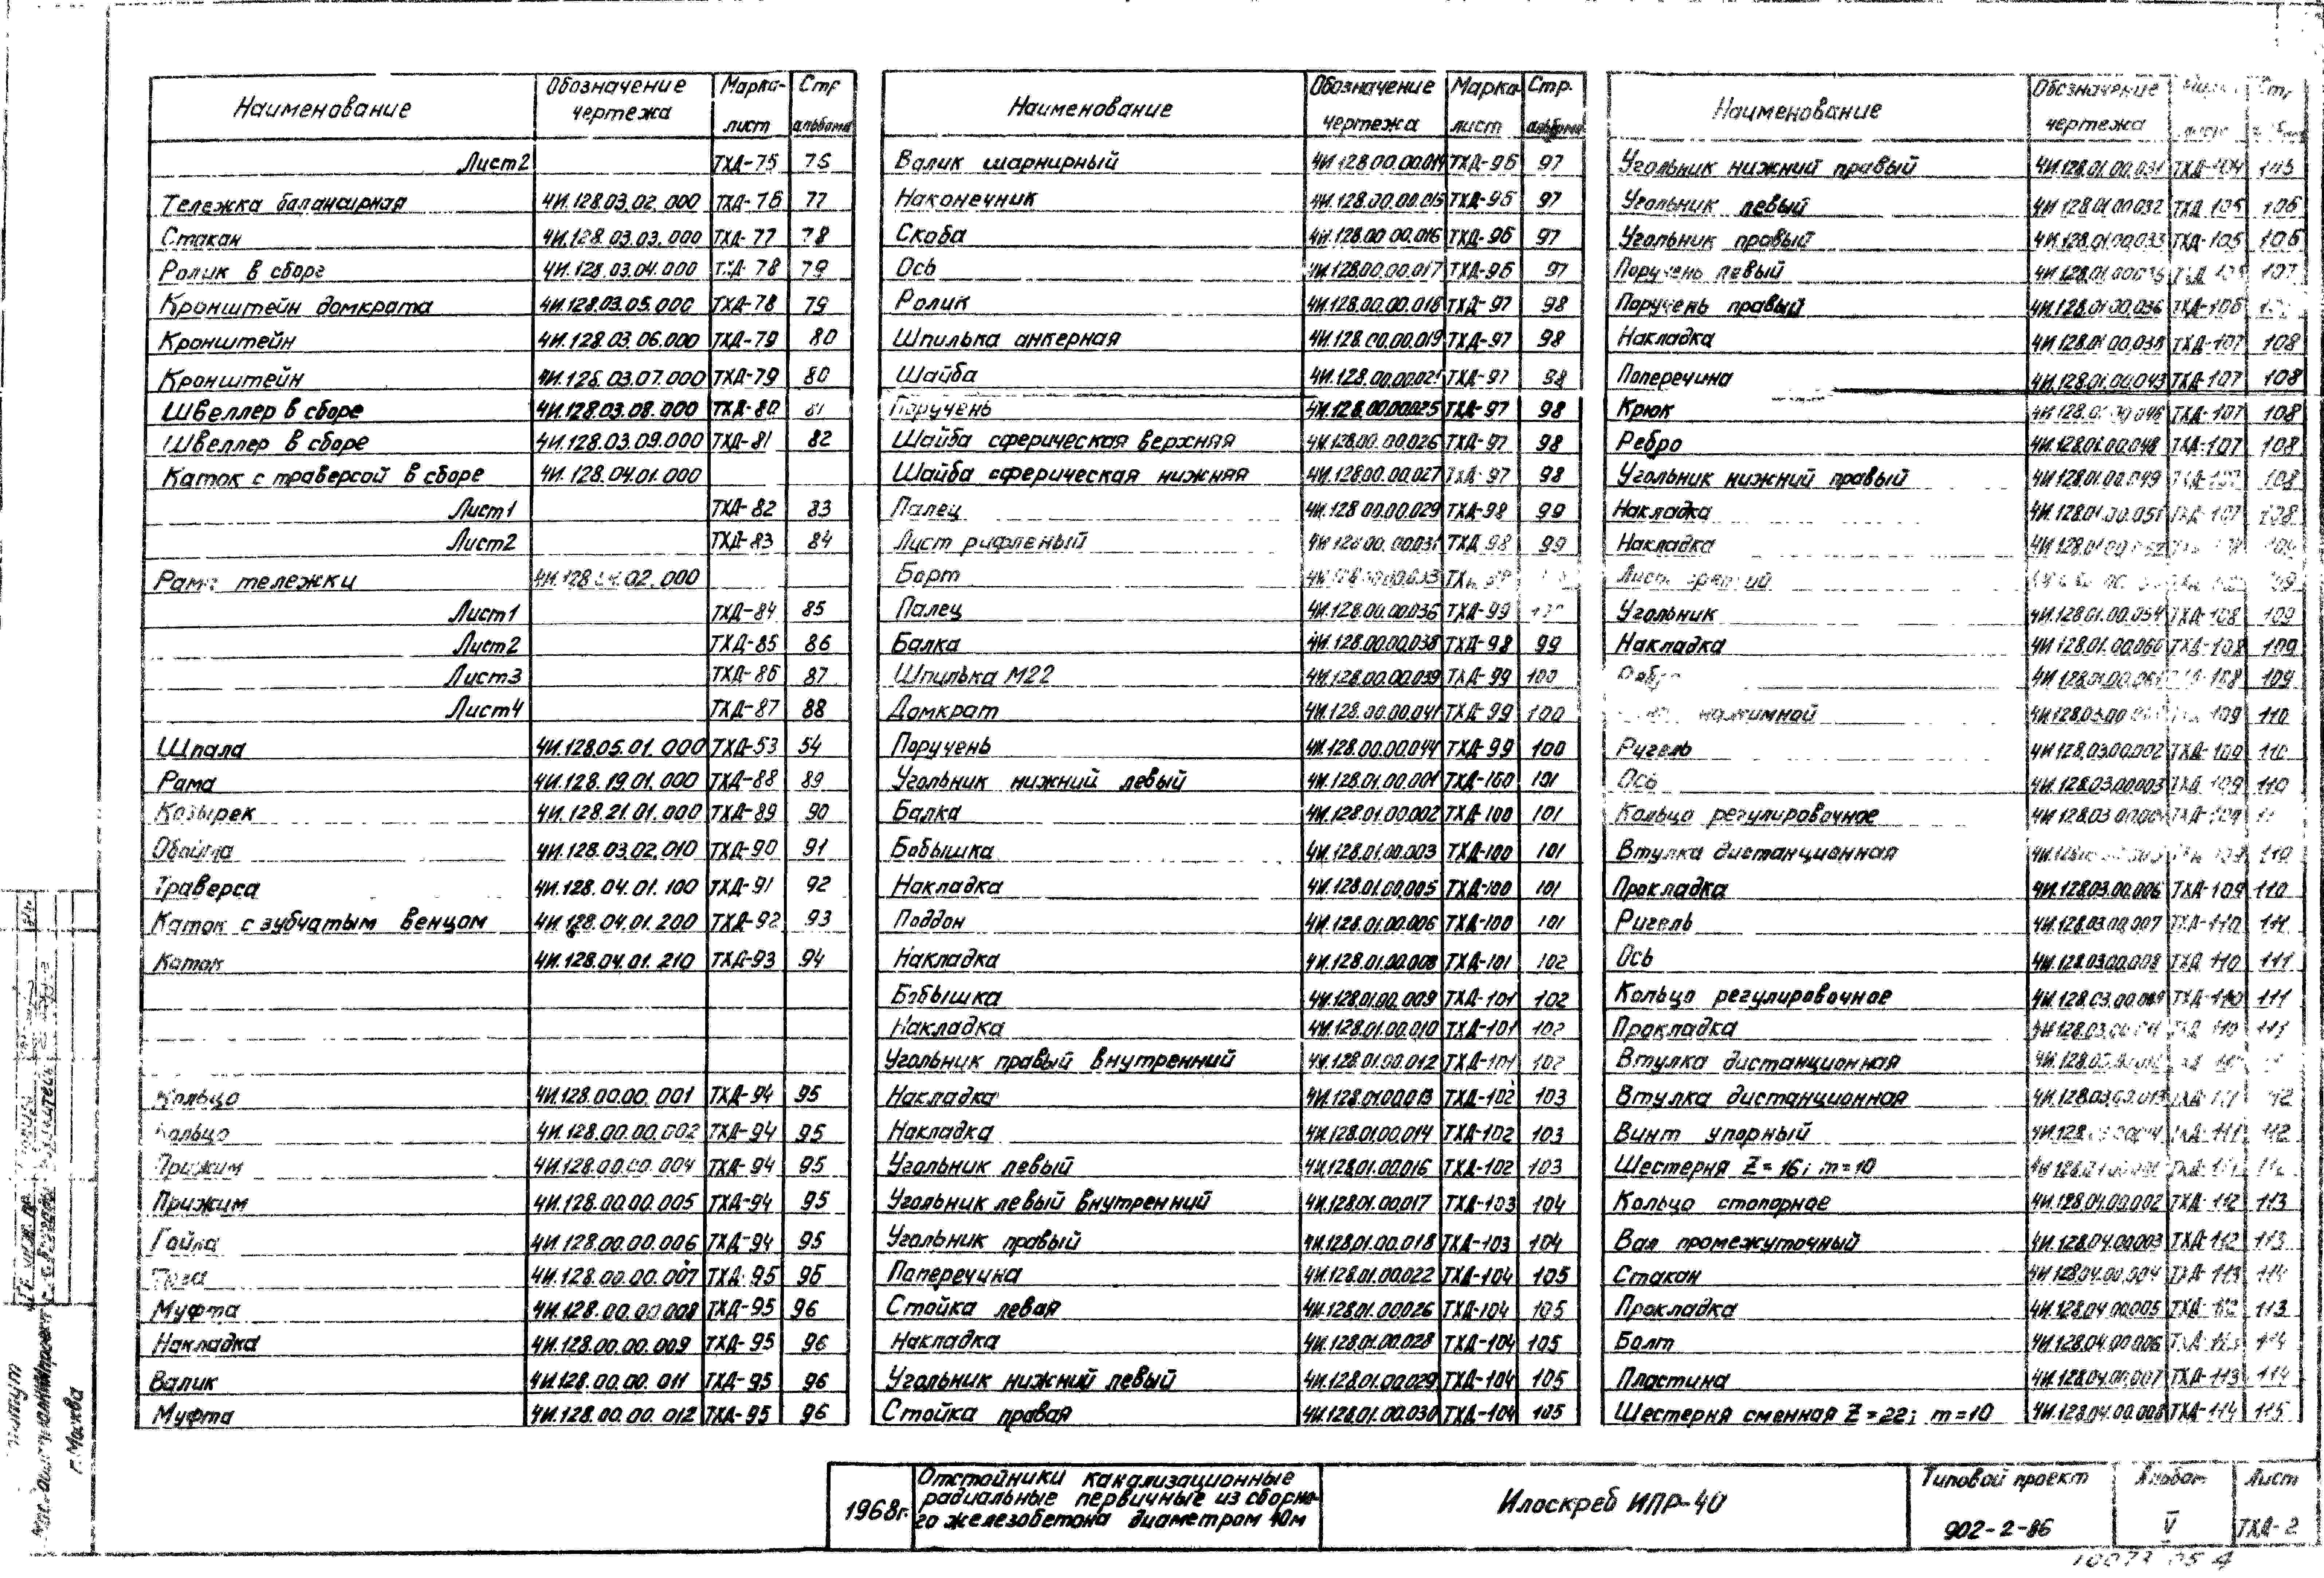 Наименование Обозначение чертежа Марка-лист Стр альбома
Лист2 ТХД-75 76
Тележка балансирная 4И.128.03.02.000 ТХД-76 77
Стакан 4И.128.03.03.000 ТХД-77 78
Ролик в сборе 4И.128.03.04.000 ТХД-78 79
Кронштейн домкрата 4И.128.03.05.000 ТХД-78 79
Кронштейн 4И.128.03.06.000 ТХД-79 80
Кронштейн 4И.128.03.07.000 ТХД-79 80
Швеллер в сборе 4И.128.03.08.000 ТХД-80 81
Швеллер в сборе 4И.128.03.09.000 ТХД-81 82
Каток с траверсой в сборе 4И.128.04.01.000
Лист1 ТХД-82 83
Лист2 ТХД-83 84
Рама тележки 4И.128.04.02.000
Лист1 ТХД-84 85
Лист2 ТХД-85 86
Лист3 ТХД-86 87
Лист4 ТХД-87 88
Шпала 4И.128.05.01.000 ТХД-53 54
Рама 4И.128.19.01.000 ТХД-88 89
Козырек 4И.128.21.01.000 ТХД-89 90
Обойма 4И.128.03.02.010 ТХД-90 91
Траверса 4И.128.04.01.100 ТХД-91 92
Каток с зубчатым венцом 4И.128.04.01.200 ТХД-92 93
Каток 4И.128.04.01.210 ТХД-93 94
Кольцо 4И.128.00.00.001 ТХД-94 95
Кольцо 4И.128.00.00.002 ТХД-94 95
Прижим 4И.128.00.00.004 ТХД-94 95
Прижим 4И.128.00.00.005 ТХД-94 95
Гайка 4И.128.00.00.006 ТХД-94 95
4И.128.00.00.007 ТХД-95 96
Муфта 4И.128.00.00.008 ТХД-95 96
Накладка 4И.128.00.00.009 ТХД-95 96
Валик 4И.128.00.00.011 ТХД-95 96
Муфта 4И.128.00.00.012 ТХД-95 96
Наименование Обозначение чертежа Марка-лист Стр. альбома
Валик шарнирный 4И.128.00.00.014 ТХД-96 97
Наконечник 4И.128.00.00.015 ТХД-96 97
Скоба 4И.128.00.00.016 ТХД-96 97
Ось 4И.128.00.00.017 ТХД-96 97
Ролик 4И.128.00.00.018 ТХД-97 98
Шпилька анкерная 4И.128.00.00.019 ТХД-97 98
Шайба 4И.128.00.00.021 ТХД-97 98
Поручень 4И.128.00.00.025 ТХД-97 98
Шайба сферическая верхняя 4И.128.00.00.026 ТХД-97 98
Шайба сферическая нижняя 4И.128.00.00.027 ТХД-97 98
Палец 4И.128.00.00.029 ТХД-98 99
Лист рифленый 4И.128.00.00.031 ТХД-98 99
Борт 4И.128.00.00.033
Палец 4И.128.00.00.036 ТХД-99
Балка 4И.128.00.00.038 ТХД-98 99
Шпилька М22 4И.128.00.00.039 ТХД-99 100
Домкрат 4И.128.00.00.041 ТХД-99 100
Поручень 4И.128.00.00.044 ТХД-99 100
Угольник нижний левый 4И.128.01.00.001 ТХД-100 101
Балка 4И.128.01.00.002 ТХД-100 101
Бобышка 4И.128.01.00.003 ТХД-100 101
Накладка 4И.128.01.00.005 ТХД-100 101
Поддон 4И.128.01.00.006 ТХД-100 101
Накладка 4И.128.01.00.008 ТХД-101 102
Бобышка 4И.128.01.00.009 ТХД-101 102
Накладка 4И.128.01.00.010 ТХД-101 102
Угольник правый внутренний 4И.128.01.00.012 ТХД-101 102
Накладка 4И.128.01.00.013 ТХД-102 103
Накладка 4И.128.01.00.014 ТХД-102 103
Угольник левый 4И.128.01.00.016 ТХД-102 103
Угольник левый внутренний 4И.128.01.00.017 ТХД-103 104
Угольник правый 4И.128.01.00.018 ТХД-103 104
Поперечина 4И.128.01.00.022 ТХД-104 105
Стойка левая 4И.128.01.00.026 ТХД-104 105
Накладка 4И.128.01.00.028 ТХД-104 105
Угольник нижний левый 4И.128.01.00.029 ТХД-104 105
Стойка правая 4И.128.01.00.030 ТХД-104 105
Наименование Обозначение чертежа
Угольник нижний правый 4И.128.01.00.031 ТХД-104 105
Угольник левый 4И.128.01.00.032 ТХД-105 106
Угольник правый 4И.128.01.00.033 ТХД-105 106
Поручень левый 107
Поручень правый 4И.128.01.00.036 ТХД-106
Накладка 4И.128.01.00.038 ТХД-107 108
Поперечина 4И.128.01.00.043 ТХД-107 108
Крюк 4И.128.01.00.046 ТХД-107 108
Ребро 4И.128.01.00.048 ТХД-107 108
Угольник нижний правый 4И.128.01.00.049 ТХД-107 108
Накладка 4И.128.01.00.051 ТХД-107 108
Накладка
Лист
Угольник 4И.128.01.00.054 ТХД-108 109
Накладка 4И.128.01.00.060 ТХД-108 109
109
нажимной 110
Ригель 4И.128.03.00.002 ТХД-109 110
Ось 4И.128.03.00.003 ТХД-109 110
Кольцо регулировочное ТХД-109
Втулка дистанционная 110
Прокладка 4И.128.03.00.006 ТХД-109 110
Ригель 4И.128.03.00.007 ТХД-110 111
Ось 4И.128.03.00.008 ТХД-110 111
Кольцо регулировочное 4И.128.03.00.009 ТХД-110 111
Прокладка
Втулка дистанционная
Втулка дистанционная 4И.128.03.00.013 ТХД-111 112
Винт упорный ТХД-111 112
Шестерня Z=16; m=10
Кольцо стопорное 4И.128.04.00.002 ТХД-112 113
Вал промежуточный 4И.128.04.00.003 ТХД-112 113
Стакан 4И.128.04.00.004 ТХД-113 114
Прокладка 4И.128.04.00.005 ТХД-112 113
Болт 4И.128.04.00.006 ТХД-113 114
Пластина 4И.128.04.00.007 ТХД-113 114
Шестерня сменная Z=22; m=10 4И.128.04.00.008 ТХД-114 115
г. Москва
1968г.
Отстойники канализационные
радиальные первичные из сборно-
го железобетона диаметром 40м
Илоскреб ИПР-40
Типовой проект
902-2-86
Альбом
V
Лист
ТХД-2